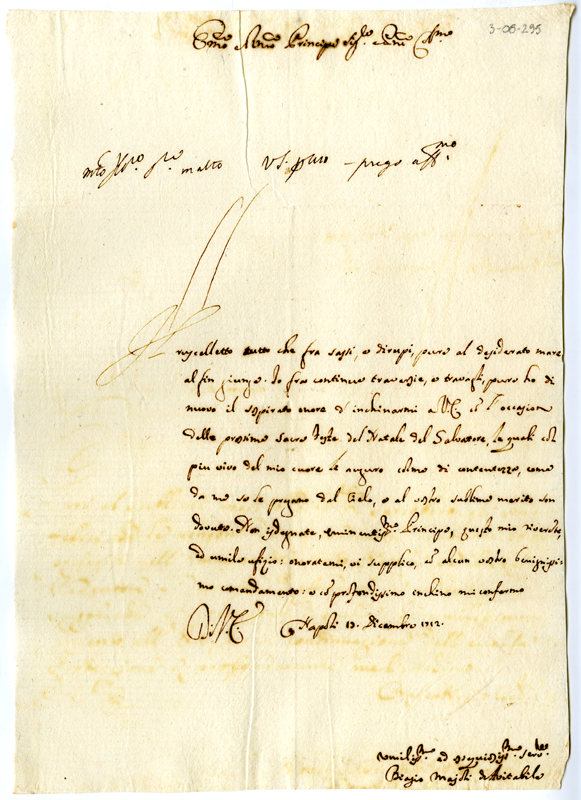 3-05-295
Em.mo e Rev.mo Principe Sig.re e Pne Col.mo
molto prego aff.mo
Il
ruscelletto tutto che fra sassi, e dirupi, pure al desiderato mare
al fin giunge. Io fra continue traversie, e travagli, pure ho di
nuovo il sospirato onore d'inchinarmi a V.E. cō l'occasione
delle prossime sacre feste del Natale del Salvatore, le quali col
piu vivo del mio cuore le auguro colme di contentezze, come
da me so se pregano dal Cielo, e al vostro sublime merito son
dovute. Non isdegnate, eminentiss.mo Principe, questo mio riverente,
ed umile ufizio: onoratemi, vi supplico, cō alcun vostro benignissi-
mo comandamento: e cō profondissimo inchino mi confermo
D. V. E. Napoli 13. Dicembre 1712.
Umiliss.mo ed ossequiosiss.mo serv.re
Biagio Majoli d'Avitabile